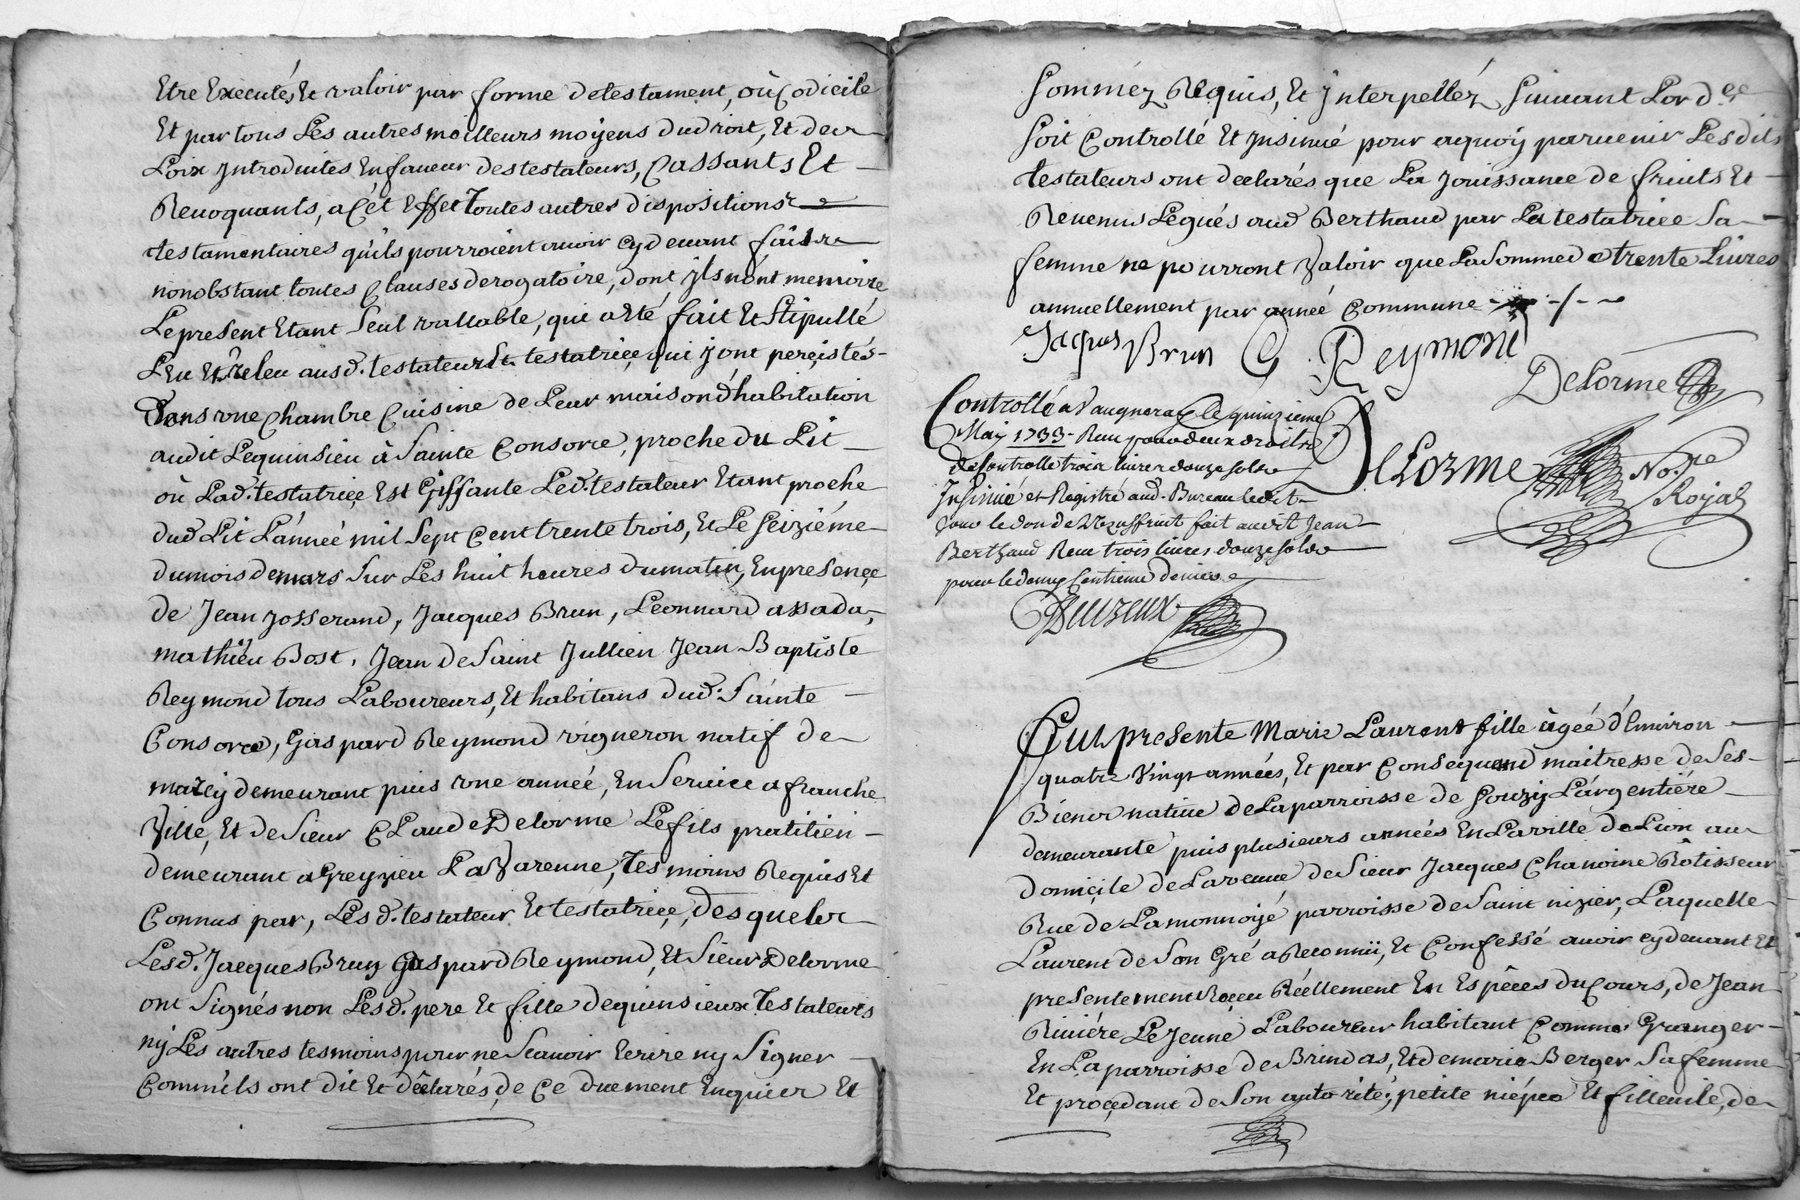 Etre Executés, Et valoir par forme detestament, où Codicile
Et par tous Les autres meilleurs moyens dudroit, Et des
Loix Introduites Enfaueur destestateurs, Cassants Et
Reuoquants, a Cét Effet Toutes autres dispositions
testamentaires qu'ils pourroient auoir Cydeuant faitte
nonobstant toutes Clauses derogatoire, dont jls nónt memoire
Le present Etant Seul vallable, qui a Eté fait Et Stipullé
Leu Et Releu ausd. testateurs Et testatriçe, qui jont perçistés
Dans vne Chambre Cuisine de Leur maison d'habitation
audit Lequinsieu à Sainte Consorce, proche du Lit
où Lad. testatriçe Est Gissante Led. testateur Etant proche
dud Lit L'année mil Sept Cent trente trois, Et Le Seiziéme
dumois demars Sur Les huit heures dumatin, En presençe
de Jean Josserand, Jacques Brun, Leonnard assada,
mathieu Bost, Jean deSaint Jullien Jean Baptiste
Reymond tous Laboureurs, Et habitans dud. Sainte
Consorce, Gaspard Reymond vigneron natif de
marcy demeurant puis vne année, En Seruice a franche
Ville, Et de Sieur Claude Delorme Le fils pratitien
demeurant a Greyzieu La Varenne, Tesmoins Requis Et
Connus par, Lesd. testateur Et testatriçe, desquels
Lesd. Jacques Brun Gaspard Reymond, Et Sieur Delorme
ont Signés non Lesd. pere Et fille dequinsieux Testateurs
ny Les autres tesmoins pour ne Scauoir Ecrire ny Signer
Comm'ils ont dit Et déclarés, de Ce duement Enquier Et
Sommez Requis, Et Interpellés Suiuant L'ord.ce
Soit Controllé Et Insinué pour aquoy paruenir Lesdits
testateurs ont declarés que La Jouissance de fruits Et
Reuenus Legués aud Berthaud par La testatriçe Sa
femme ne pourront Valoir que La Somme de trente Liures
annuellement par année Commune
Jacques Brun G Reymond
Delorme
Controllé a Vaugneray le quinzieme
May 1733 Reçu pour deux droits
de Controlle trois liures douze sols
Delorme No.re
Royal
Insinué et Registré aud. Bureau led. jt
pour le don de L'Vzuffruit fait audit Jean
Berthaud Reçu trois liures douze sols
pour le demy Centieme denier
Duizeux
Fut presente Marie Laurent fille àgeé d'Enuiron
quatre Vingt années, Et par Consequend maitresse de Ses
Biens natiue de La parroisse de Souzy L'argentiére
demeurante puis plusieurs années En La ville de Lion au
domiçile de La veuue de Sieur Jacques Chanoine Rôtisseur
Rue de La monnoyé parroisse de Saint nizier, Laquelle
Laurent de Son Gré a Reconnü, Et Confessé auoir cydeuant Et
presentement Reçeu Réellement En Espéces du Cours, de Jean
Riuiére Le Jeune Laboureur habitant Comme Granger
En La parroisse de Brindas, Et de marie Berger Sa femme
Et proçedant de Son autorité, petite niépce Et filleuile, de